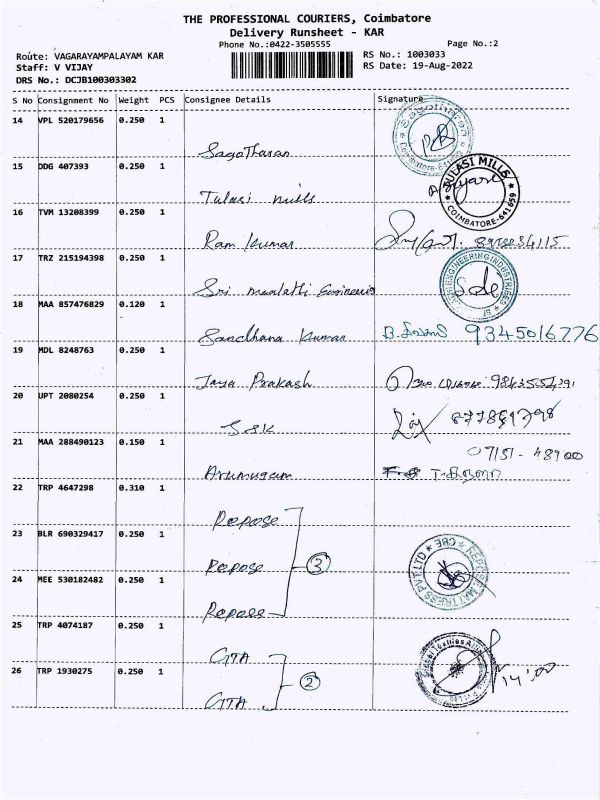 THE PROFESSIONAL COURIERS, Coimbatore
Delivery Runsheet - KAR
Phone No.:0422-3505555
Page No.:2
Route: VAGARAYAMPALAYAM KAR
RS No.: 1003033
Staff: V VIJAY
RS Date: 19-Aug-2022
DRS No.: DCJB100303302
S No Consignment No Weight PCS Consignee Details Signature
14 VPL 520179656 0.250 1
Sagatharan
15 DDG 407393 0.250 1
TULASI MILLS
COIMBATORE-641659
Tulasi mills
16 TVM 13208399 0.250 1
Ram Kumar
17 TRZ 215194398 0.250 1
ENGINEERING INDUSTRIES
Sri
18 MAA 857476829 0.120 1
Sandhana Kumar 9345016776
19 MDL 8248763 0.250 1
Jaya Prakash
20 UPT 2080254 0.250 1
SSK
21 MAA 288490123 0.150 1
07151-48900
Arumugam
22 TRP 4647298 0.310 1
Repose
23 BLR 690329417 0.250 1
REPOSE MATTRESS PVT LTD CBE
Repose 3
24 MEE 530182482 0.250 1
Repose
25 TRP 4074187 0.250 1
GTA
26 TRP 1930275 0.250 1
2 14:00
GTA